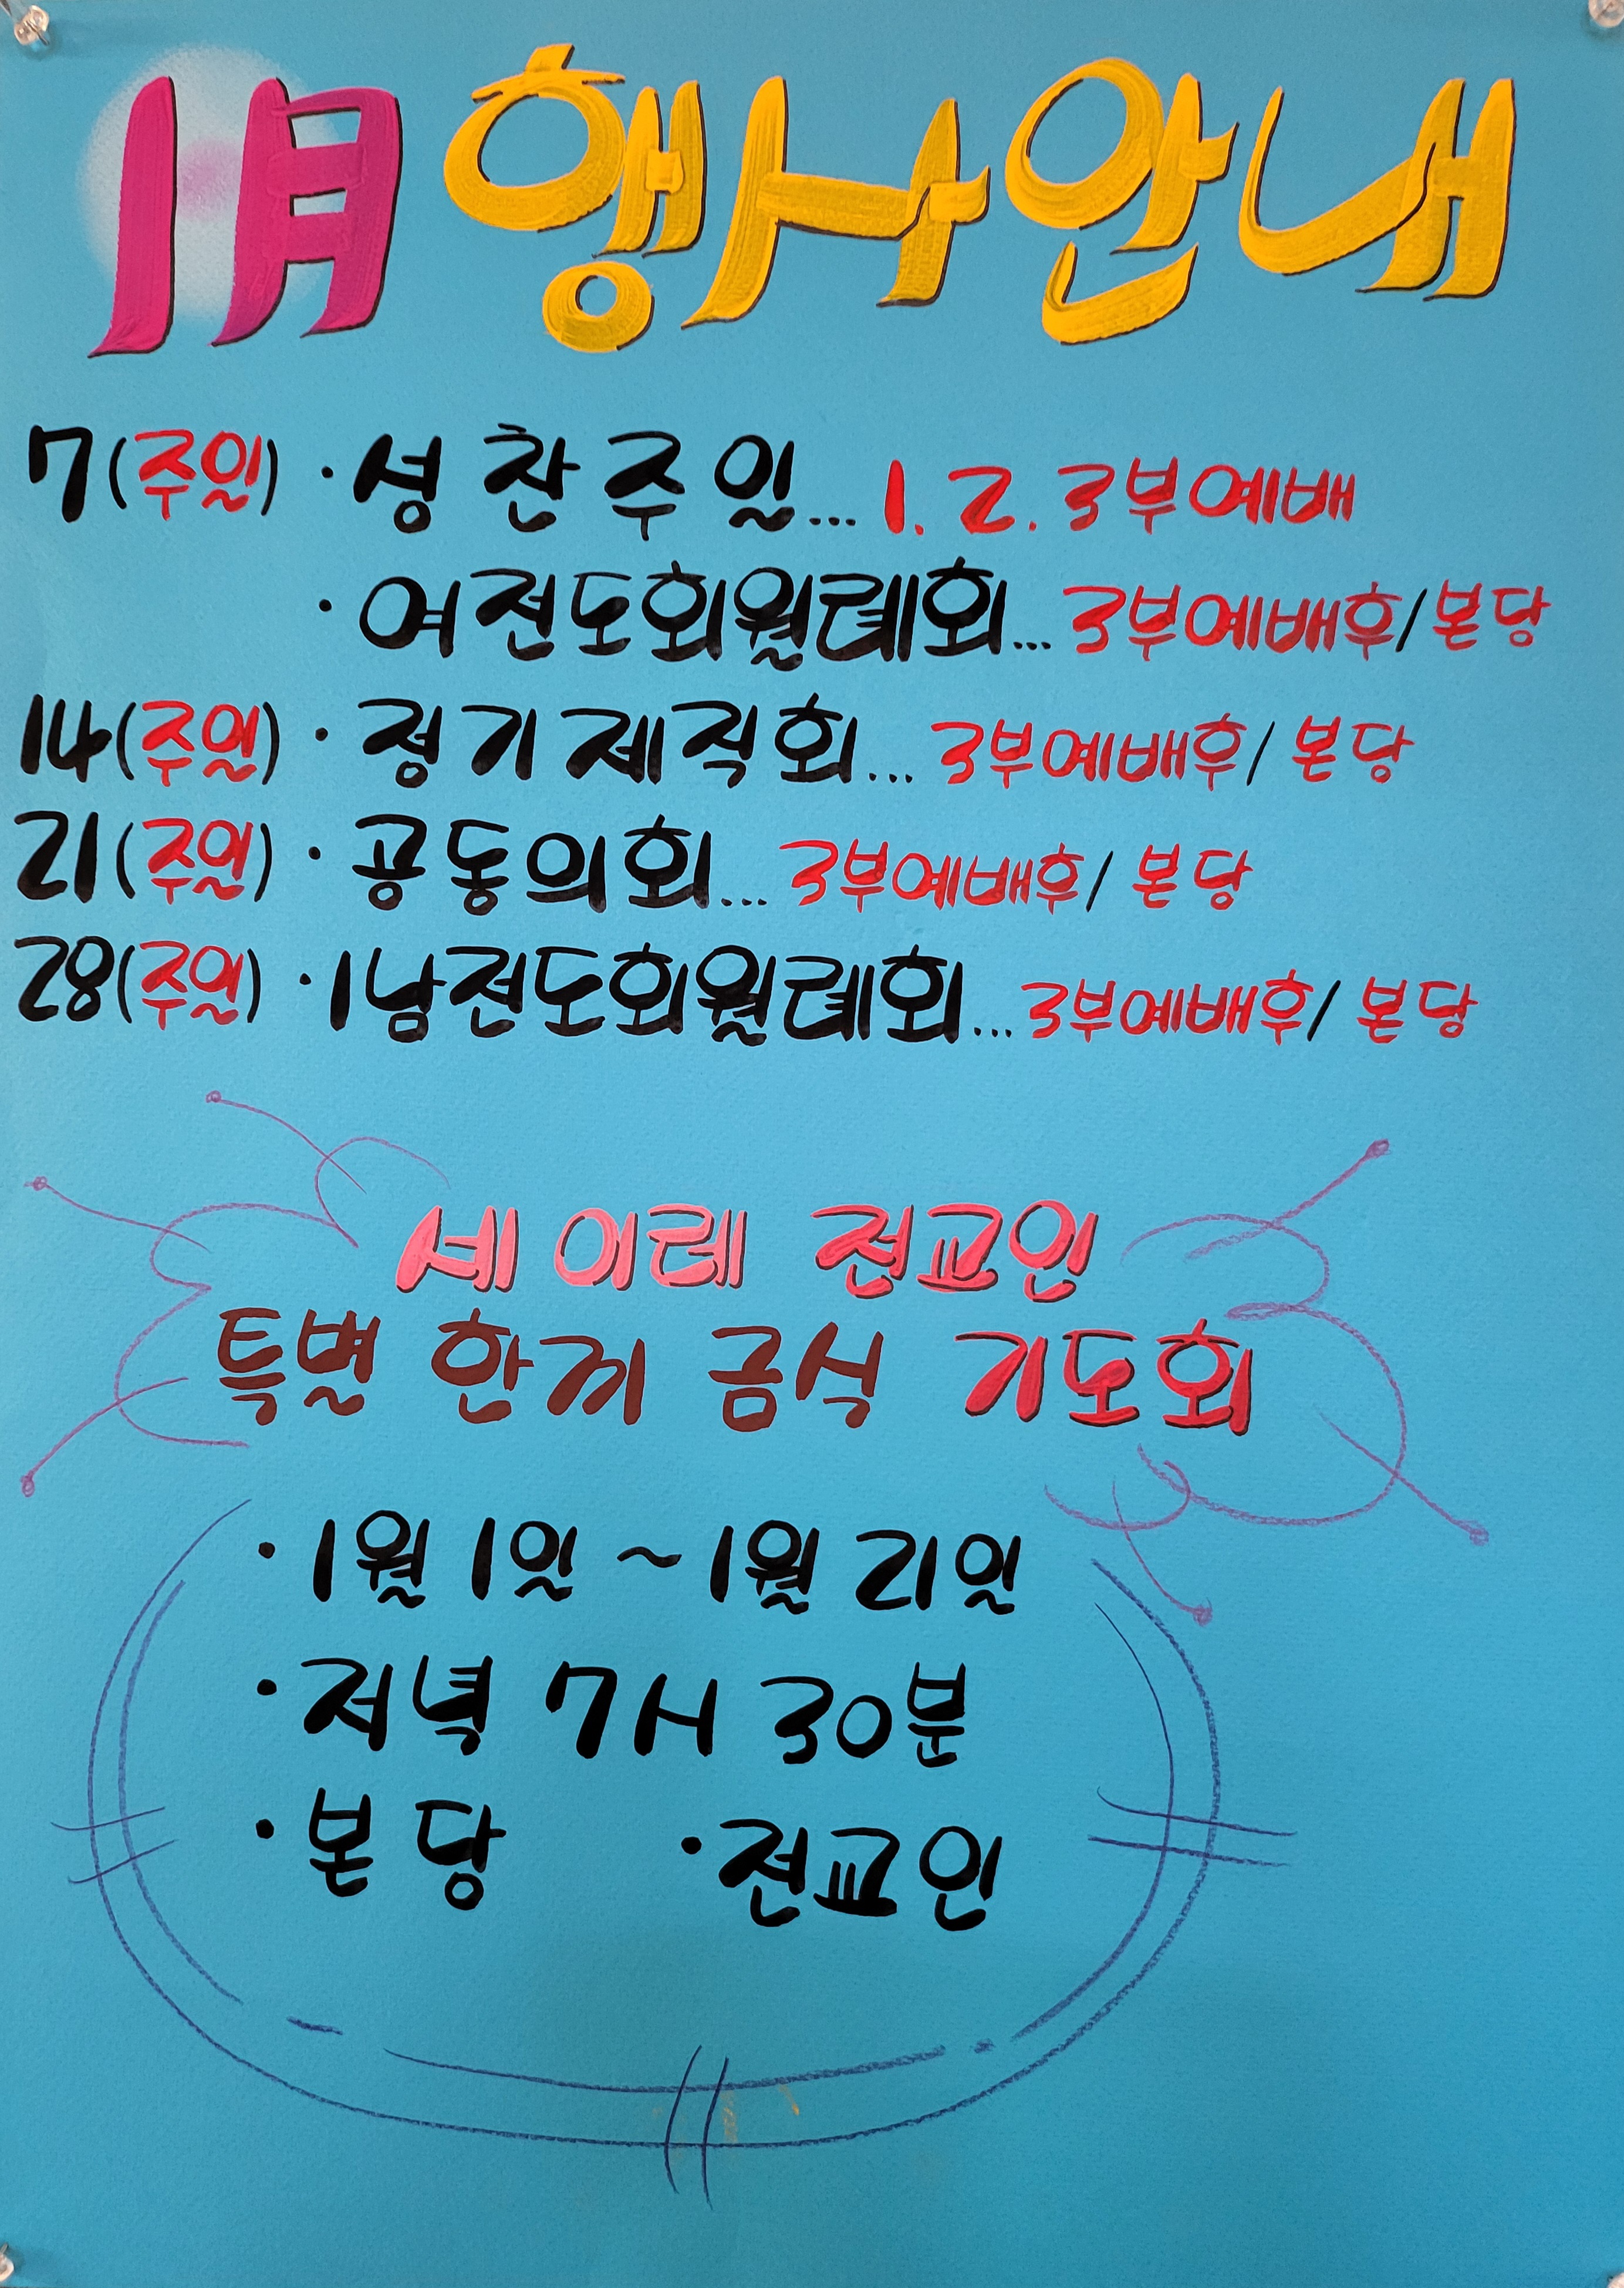 1月 행사안내
7(주일) · 성찬주일... 1. 2. 3부예배
· 여전도회월례회... 3부예배후/본당
14(주일) · 정기제직회... 3부예배후/ 본당
21(주일) · 공동의회... 3부예배후/ 본당
28(주일) · 1남전도회월례회... 3부예배후/ 본당
세 이레 전교인
특별 한끼 금식 기도회
· 1월 1일 ~ 1월 21일
· 저녁 7시 30분
· 본당 · 전교인